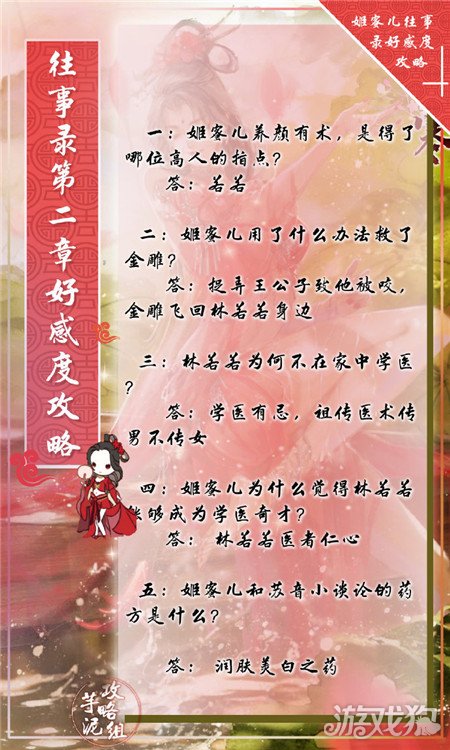 姬蜜儿往事
录好感度
攻略
往事录第二章好感度攻略
一：姬蜜儿养颜有术，是得了
哪位高人的指点？
答：若若
二：姬蜜儿用了什么办法救了
金雕？
答：捉弄王公子致他被咬，
金雕飞回林若若身边
三：林若若为何不在家中学医
？
答：学医有忌，祖传医术传
男不传女
四：姬蜜儿为什么觉得林若若
能够成为学医奇才？
答： 林若若医者仁心
五：姬蜜儿和苏音小谈论的药
方是什么？
答： 润肤美白之药
攻略组
芋泥
游戏狗